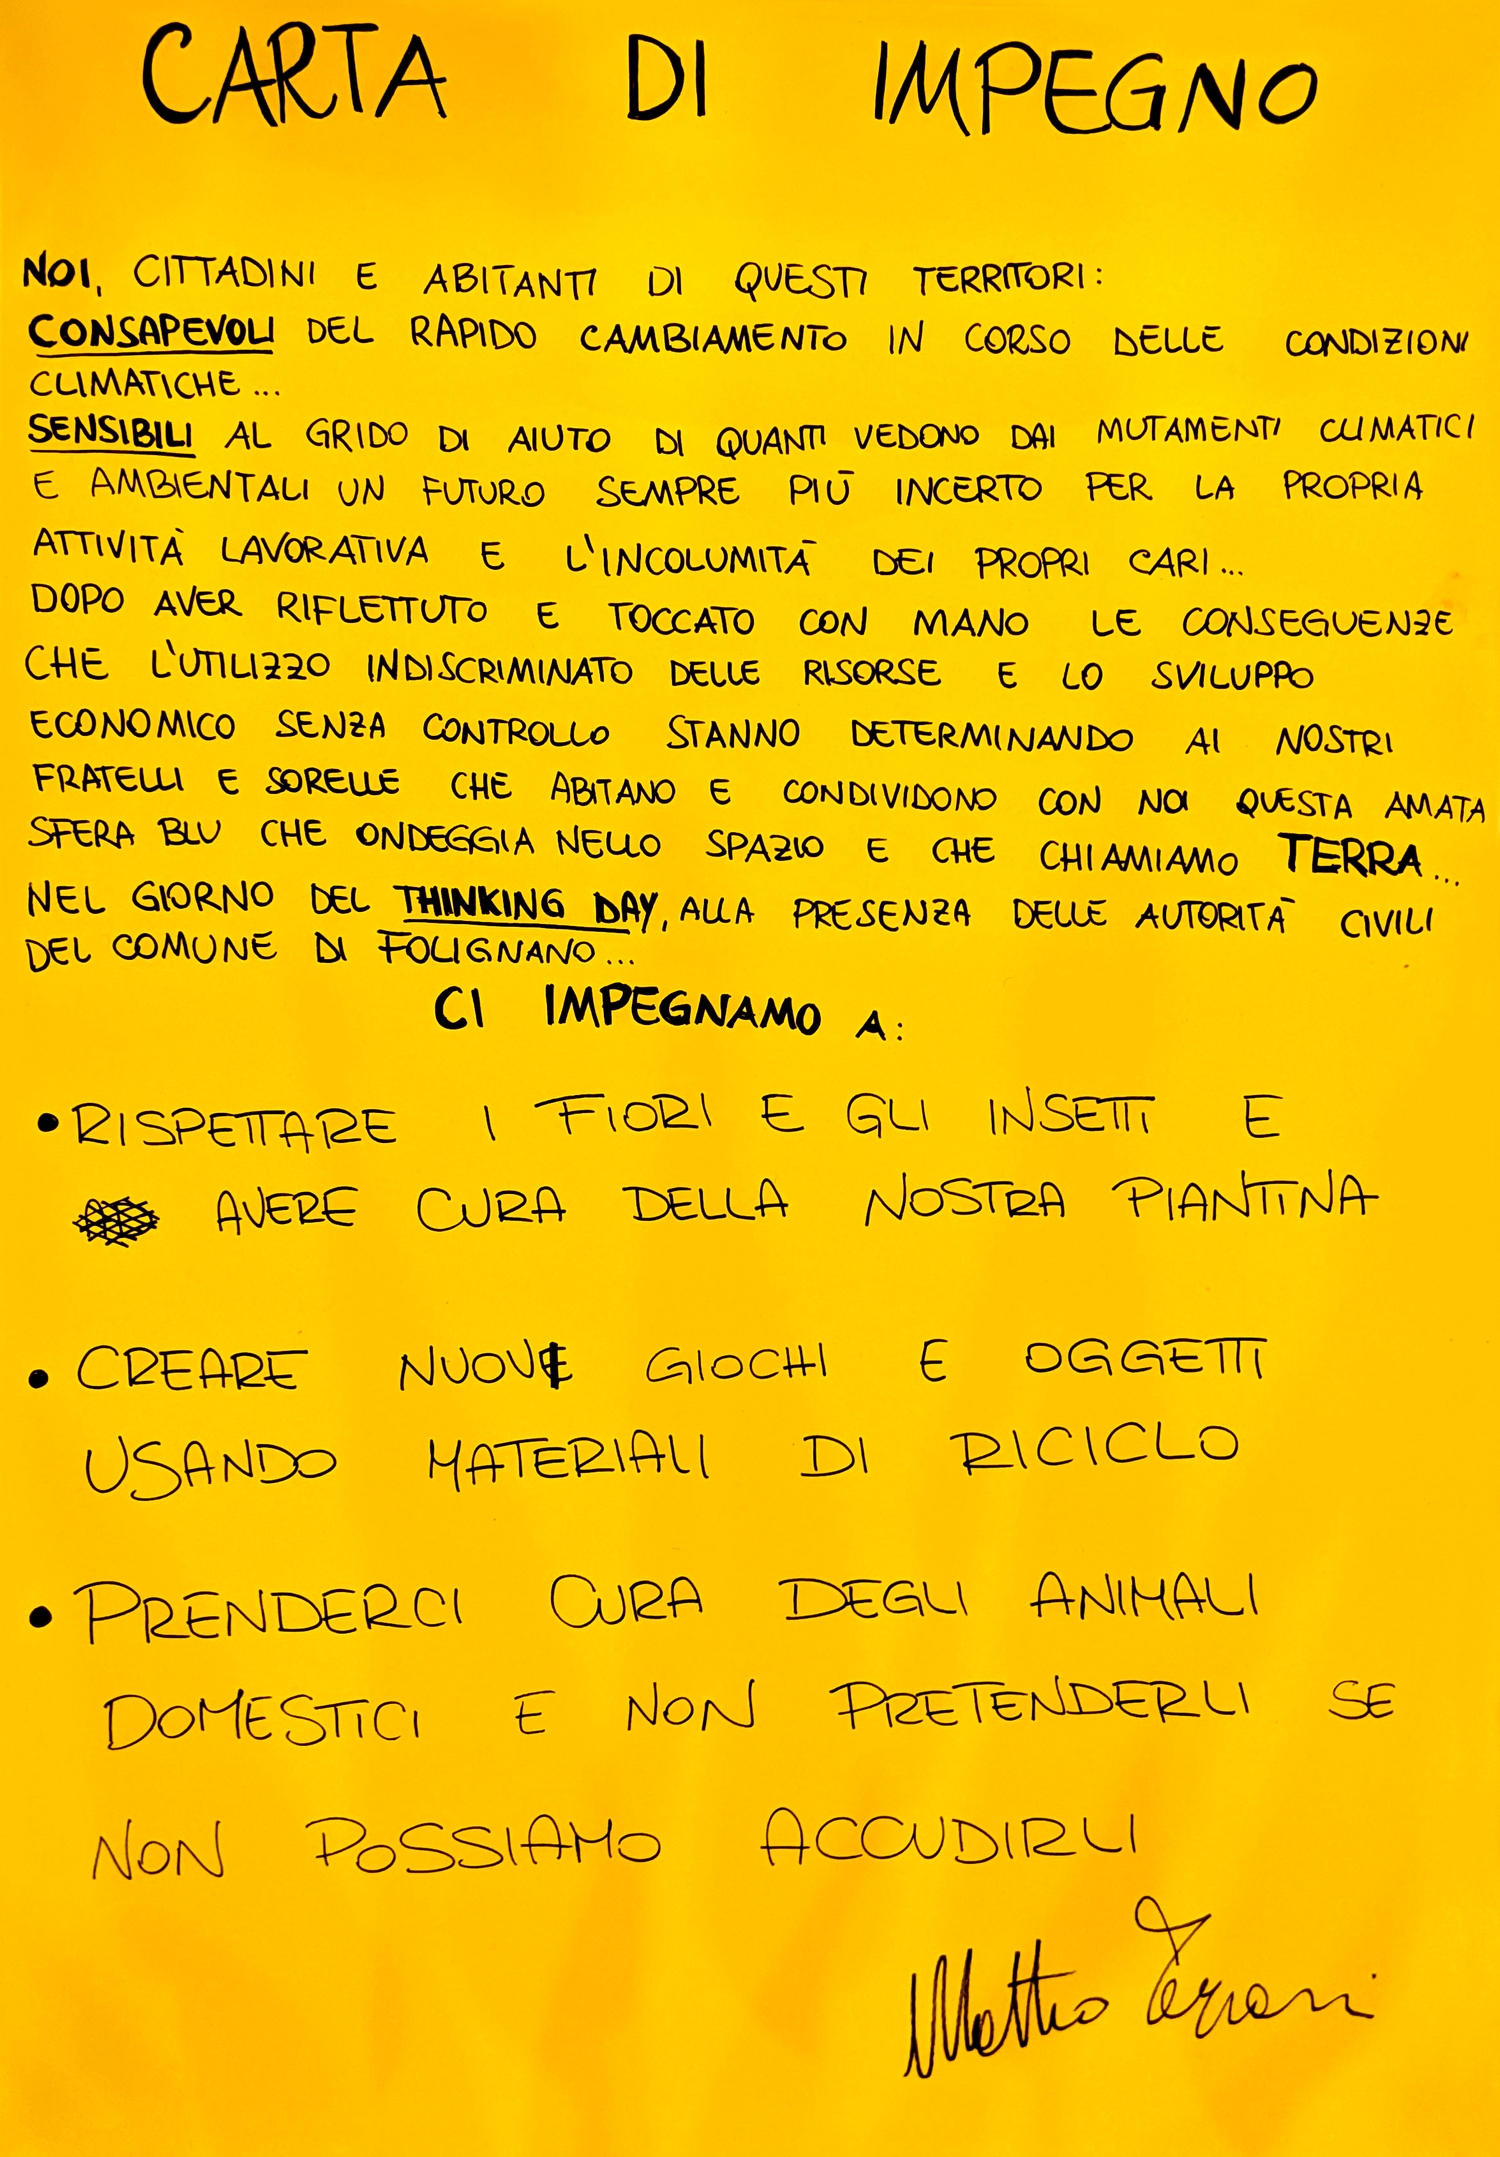 CARTA DI IMPEGNO
NOI, CITTADINI E ABITANTI DI QUESTI TERRITORI:
CONSAPEVOLI DEL RAPIDO CAMBIAMENTO IN CORSO DELLE CONDIZIONI
CLIMATICHE...
SENSIBILI AL GRIDO DI AIUTO DI QUANTI VEDONO DAI MUTAMENTI CLIMATICI
E AMBIENTALI UN FUTURO SEMPRE PIÙ INCERTO PER LA PROPRIA
ATTIVITÀ LAVORATIVA E L'INCOLUMITÀ DEI PROPRI CARI...
DOPO AVER RIFLETTUTO E TOCCATO CON MANO LE CONSEGUENZE
CHE L'UTILIZZO INDISCRIMINATO DELLE RISORSE E LO SVILUPPO
ECONOMICO SENZA CONTROLLO STANNO DETERMINANDO AI NOSTRI
FRATELLI E SORELLE CHE ABITANO E CONDIVIDONO CON NOI QUESTA AMATA
SFERA BLU CHE ONDEGGIA NELLO SPAZIO E CHE CHIAMIAMO TERRA...
NEL GIORNO DEL THINKING DAY, ALLA PRESENZA DELLE AUTORITÀ CIVILI
DEL COMUNE DI FOLIGNANO...
CI IMPEGNAMO A:
• RISPETTARE I FIORI E GLI INSETTI E
AVERE CURA DELLA NOSTRA PIANTINA
• CREARE NUOVI GIOCHI E OGGETTI
USANDO MATERIALI DI RICICLO
• PRENDERCI CURA DEGLI ANIMALI
DOMESTICI E NON PRETENDERLI SE
NON POSSIAMO ACCUDIRLI
Matteo